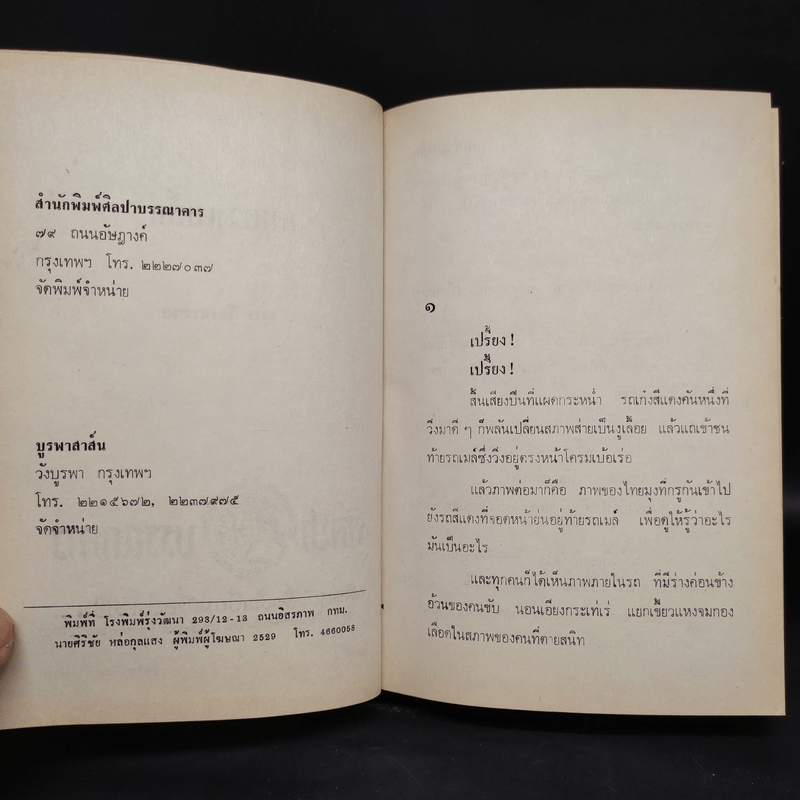 สำนักพิมพ์ศิลปาบรรณาคาร
๗๙ ถนนอัษฎางค์
กรุงเทพฯ โทร. ๒๒๒๗๐๓๗
จัดพิมพ์จำหน่าย
บูรพาสาส์น
วังบูรพา กรุงเทพฯ
โทร. ๒๒๑๕๖๗๒, ๒๒๓๗๙๗๕
จัดจำหน่าย
พิมพ์ที่ โรงพิมพ์รุ่งวัฒนา 293/12-13 ถนนอิสรภาพ กทม.
นายศิริชัย หล่อกุลแสง ผู้พิมพ์ผู้โฆษณา 2529 โทร. 4660058
๑
เปรี้ยง!
เปรี้ยง!
สิ้นเสียงปืนที่แผดกระหน่ำ รถเก๋งสีแดงคันหนึ่งที่
วิ่งมาดี ๆ ก็พลันเปลี่ยนสภาพส่ายเป็นงูเลื้อย แล้วแถเข้าชน
ท้ายรถเมล์ซึ่งวิ่งอยู่ตรงหน้าโครมเบ้อเร่อ
แล้วภาพต่อมาก็คือ ภาพของไทยมุงที่กรูกันเข้าไป
ยังรถสีแดงที่จอดหน้าย่นอยู่ท้ายรถเมล์ เพื่อดูให้รู้ว่าอะไร
มันเป็นอะไร
และทุกคนก็ได้เห็นภาพภายในรถ ที่มีร่างค่อนข้าง
อ้วนของคนขับ นอนเอียงกระเท่เร่ แยกเขี้ยวแหงจมกอง
เลือดในสภาพของคนที่ตายสนิท